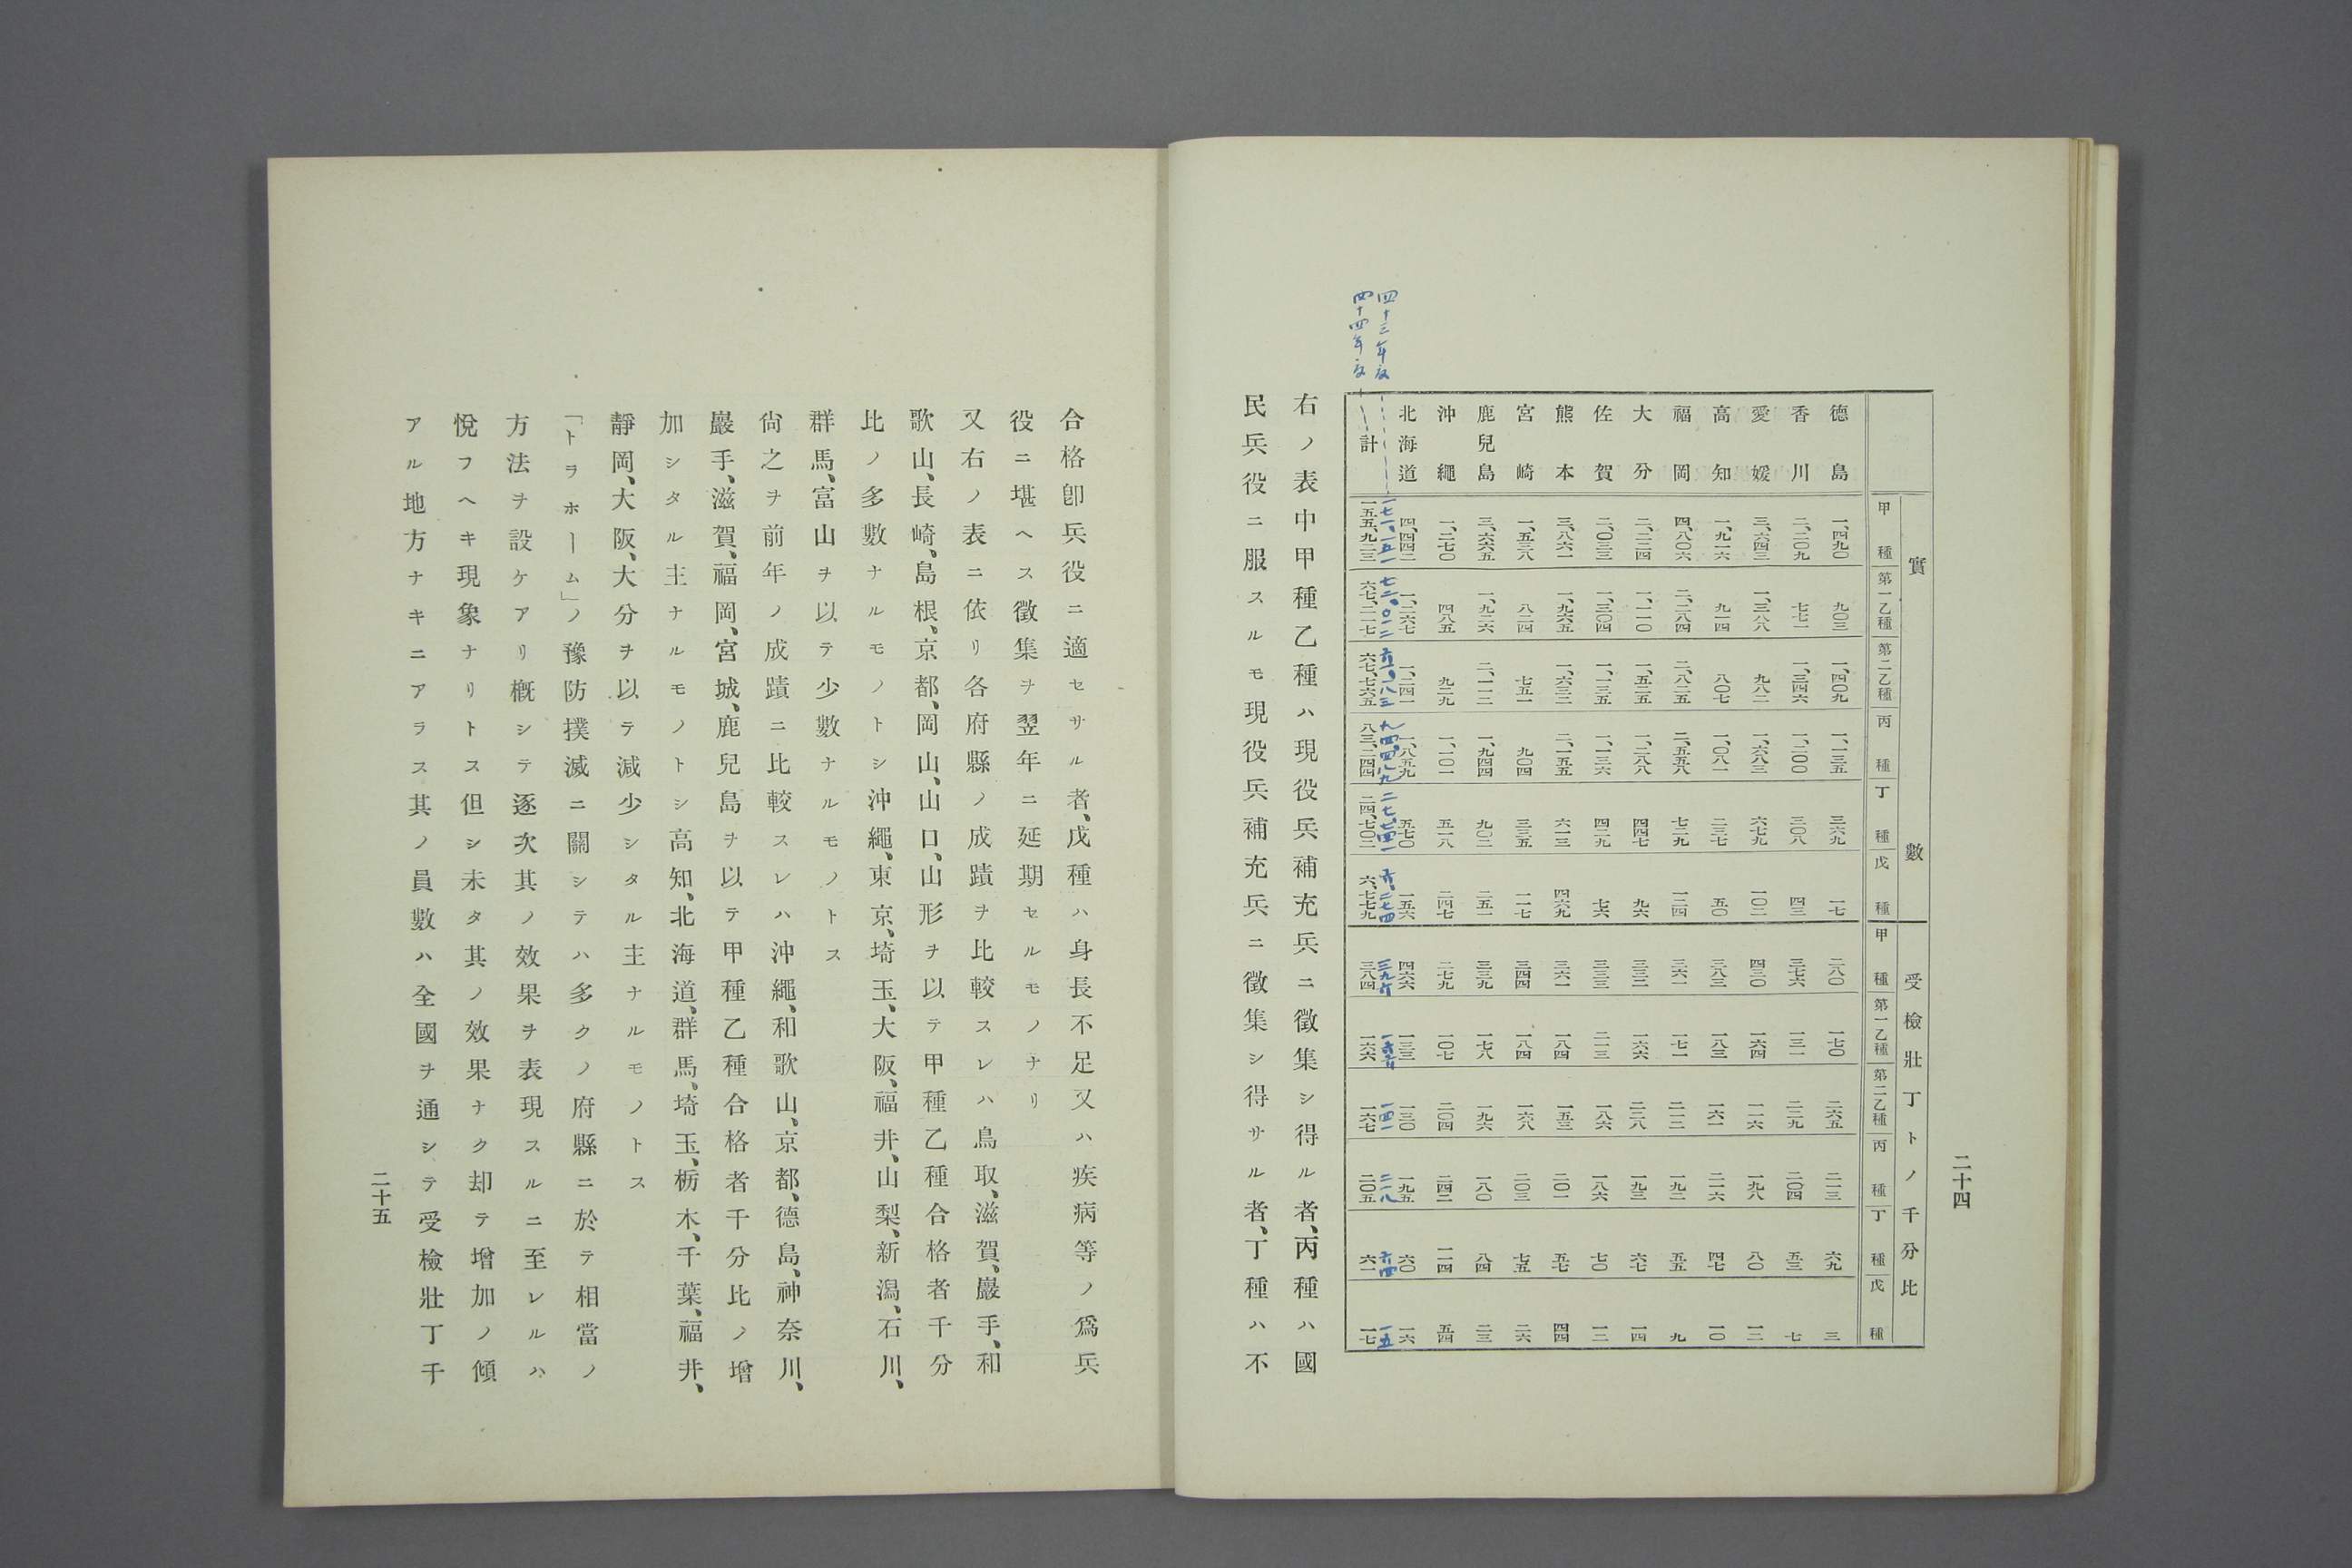 二十四
實數
受檢壯丁トノ千分比
甲種 第一乙種 第二乙種 丙種 丁種 戊種 甲種 第一乙種 第二乙種 丙種 丁種 戊種
德島 一、四九〇 九〇三 一、四〇九 一、一三五 三六九 一七 二八〇 一七〇 二六五 二一三 六九 三
香川 二、二〇九 七七一 一、三四六 一、二〇〇 三〇八 四三 三七六 一三一 二二九 二〇四 五三 七
愛媛 三、六四三 一、三八八 九八二 一、六八三 六七九 一〇二 四三〇 一六四 一一六 一九八 八〇 一二
高知 一、九一六 九一四 八〇七 一、〇八一 二三七 五〇 三八三 一八三 一六一 二一六 四七 一〇
福岡 四、八〇六 二、二八四 二、八二五 二、五五八 七二九 一二四 三六一 一七一 二一二 一九二 五五 九
大分 二、二二四 一、一一〇 一、五二五 一、二八八 四四七 九六 三三二 一六六 二二八 一九三 六七 一四
佐賀 二、〇三三 一、三〇四 一、一三五 一、一三六 四二九 七六 三三三 二一三 一八六 一八六 七〇 一二
熊本 三、八六一 一、九六五 一、六三二 二、一五五 六一三 四六九 三六一 一八四 一五三 二〇一 五七 四四
宮崎 一、五三八 八二四 七五一 九〇四 三三五 一一七 三四四 一八四 一六八 二〇三 七五 二六
鹿兒島 三、六六五 一、九二六 二、一一二 一、九四四 九〇二 二五一 三三九 一七八 一九六 一八〇 八四 二三
沖繩 一、二七〇 四八五 九二九 一、一〇一 五一八 二四七 二七九 一〇七 二〇四 二四二 一一四 五四
北海道 四、四四二 一、二六七 一、二四一 一、八五九 五七〇 一五六 四六六 一三三 一三〇 一九五 六〇 一六
四十三年度 一七一、一五一 七二、〇一二 六一、一八三 九四、四八九 二七、七四一 六、二七四 三九六 一六六 一四一 二一八 六四 一五
四十四年度
計 一五五、九二三 六七、二一七 六七、七六五 八三、二四四 二四、七〇二 六、七七九 三八四 一六六 一六七 二〇五 六一 一七
右ノ表中甲種乙種ハ現役兵補充兵ニ徵集シ得ル者、丙種ハ國
民兵役ニ服スルモ現役兵補充兵ニ徵集シ得サル者、丁種ハ不
合格卽兵役ニ適セサル者、戊種ハ身長不足又ハ疾病等ノ爲兵
役ニ堪ヘス徵集ヲ翌年ニ延期セルモノナリ
又右ノ表ニ依リ各府縣ノ成蹟ヲ比較スレハ鳥取、滋賀、巖手、和
歌山、長崎、島根、京都、岡山、山口、山形ヲ以テ甲種乙種合格者千分
比ノ多數ナルモノトシ沖繩、東京、埼玉、大阪、福井、山梨、新潟、石川、
群馬、富山ヲ以テ少數ナルモノトス
尙之ヲ前年ノ成蹟ニ比較スレハ沖繩、和歌山、京都、德島、神奈川、
巖手、滋賀、福岡、宮城、鹿兒島ヲ以テ甲種乙種合格者千分比ノ增
加シタル主ナルモノトシ高知、北海道、群馬、埼玉、栃木、千葉、福井、
靜岡、大阪、大分ヲ以テ減少シタル主ナルモノトス
「トラホーム」ノ豫防撲滅ニ關シテハ多クノ府縣ニ於テ相當ノ
方法ヲ設ケアリ槪シテ逐次其ノ效果ヲ表現スルニ至レルハ
悅フヘキ現象ナリトス但シ未タ其ノ效果ナク却テ增加ノ傾
アル地方ナキニアラス其ノ員數ハ全國ヲ通シテ受檢壯丁千
二十五